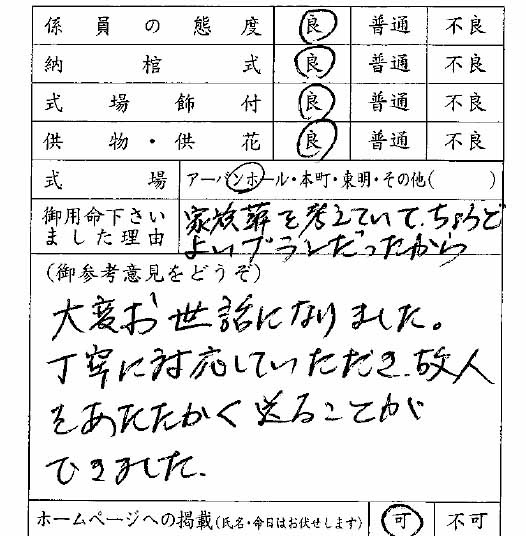 係員の態度 良 普通 不良
納棺式 良 普通 不良
式場飾付 良 普通 不良
供物・供花 良 普通 不良
式場 アーバンホール・本町・東明・その他( )
御用命下さい
ました理由
家族葬を考えていて、ちょうど
よいプランだったから
(御参考意見をどうぞ)
大変お世話になりました。
丁寧に対応していただき、故人
をあたたかく送ることが
できました。
ホームページへの掲載(氏名・命日はお伏せします) 可 不可